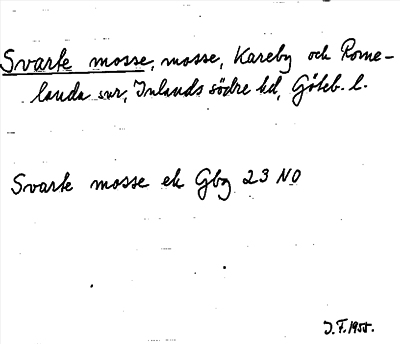 Svarte mosse, mosse, Kareby och Rome-
landa snr, Inlands södre hd, Göteb. l.
Svarte mosse ek Gbg 23 NO
J.F. 1955.